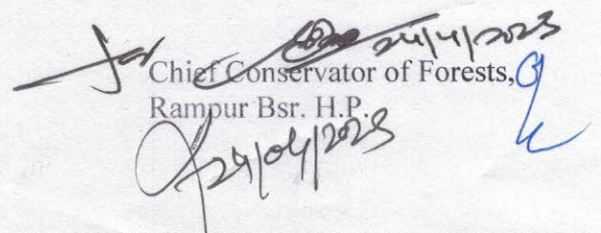 for 24/4/2023
Chief Conservator of Forests,
Rampur Bsr. H.P.
24/04/2023